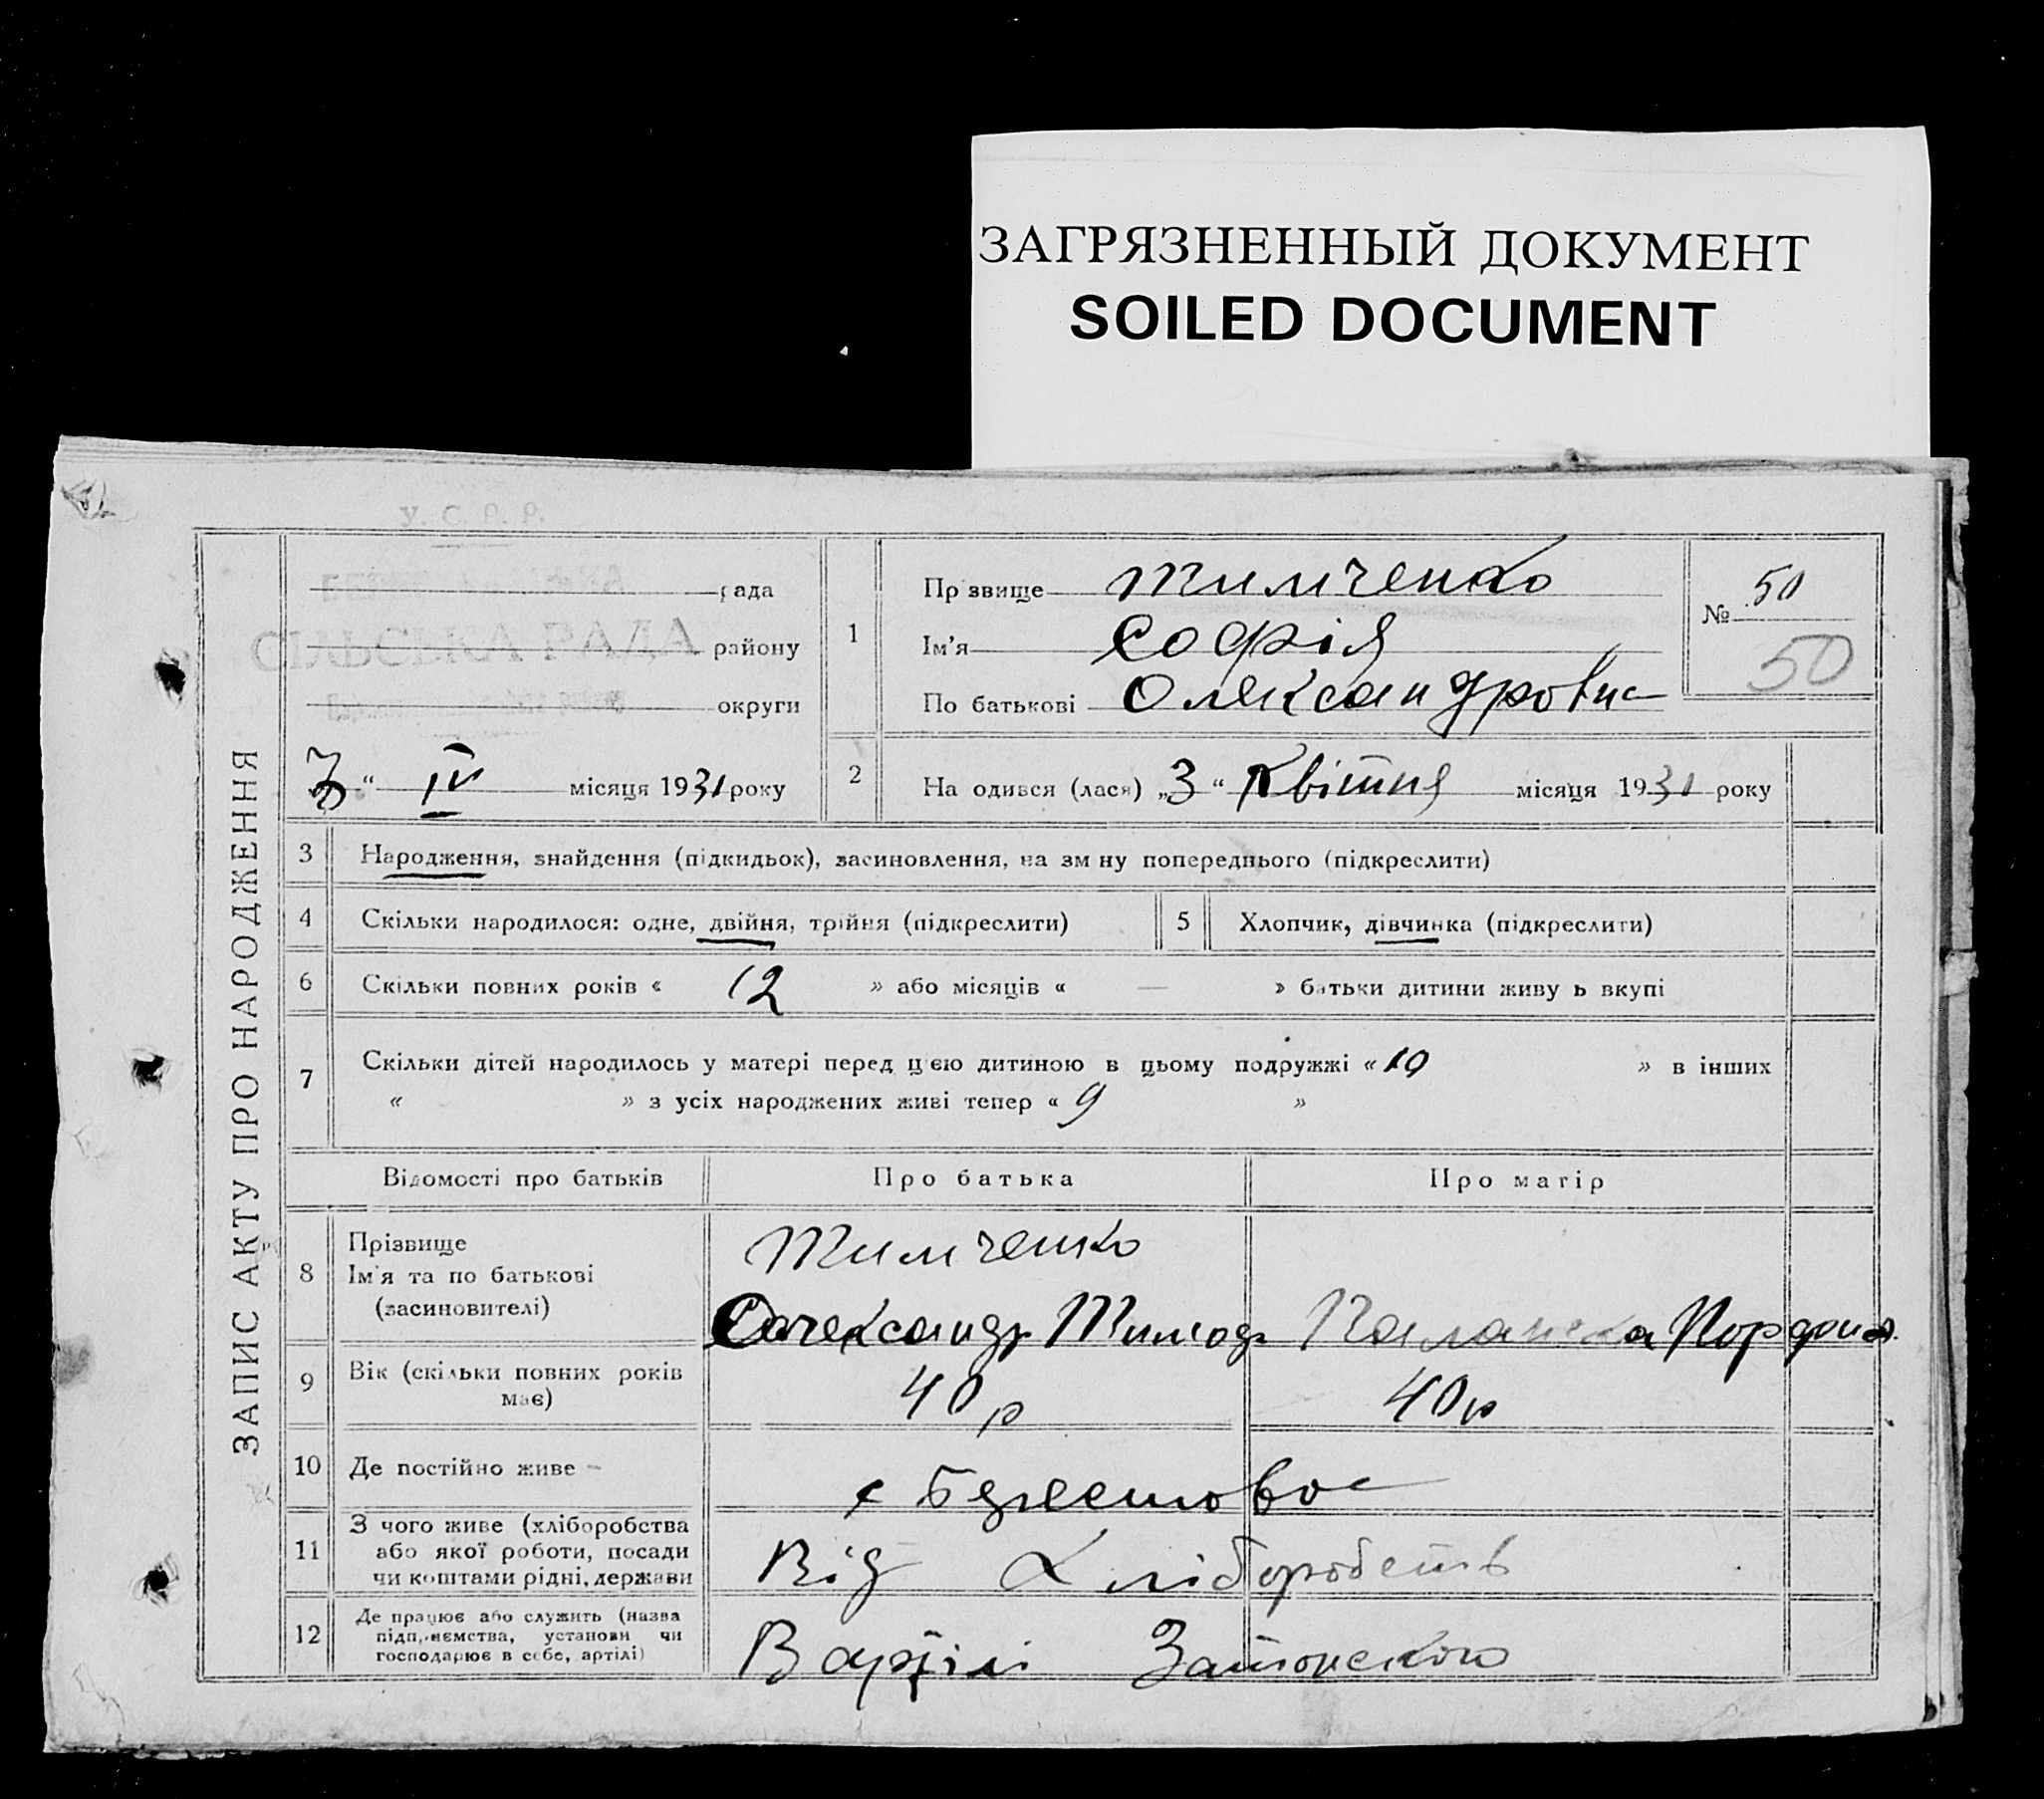 ЗАГРЯЗНЕННЫЙ ДОКУМЕНТ
SOILED DOCUMENT
У. С. Р. Р.
ЗАПИС АКТУ ПРО НАРОДЖЕННЯ
рада
СІЛЬСЬКА РАДА району
округи
3 " IV місяця 1931 року
1
Прізвище Тимченко
Ім'я Софія
По батькові Олександровна
№ 50
50
2
На одився (лася) „3 " Квітня місяця 1931 року
3 Народження, знайдення (підкидьок), засиновлення, на зм ну попереднього (підкреслити)
4 Скільки народилося: одне, двійня, трійня (підкреслити) 5 Хлопчик, дівчинка (підкреслити)
6 Скільки повних років « 12 » або місяців « — » батьки дитини живу ь вкупі
7 Скільки дітей народилось у матері перед цією дитиною в цьому подружжі « 10 » в інших
« » з усіх народжених живі тепер « 9 »
Відомості про батьків Про батька Про матір
8 Прізвище
Ім'я та по батькові
(засиновителі)
Тимченко
Олександр Тимоф
9 Вік (скільки повних років
має)
40 р 40 р
10 Де постійно живе
с Берестове
11 З чого живе (хліборобства
або якої роботи, посади
чи коштами рідні, держави
Від Хліборобств
12 Де працює або служить (назва
підприємства, установи чи
господарює в себе, артілі)
В артілі Затонского